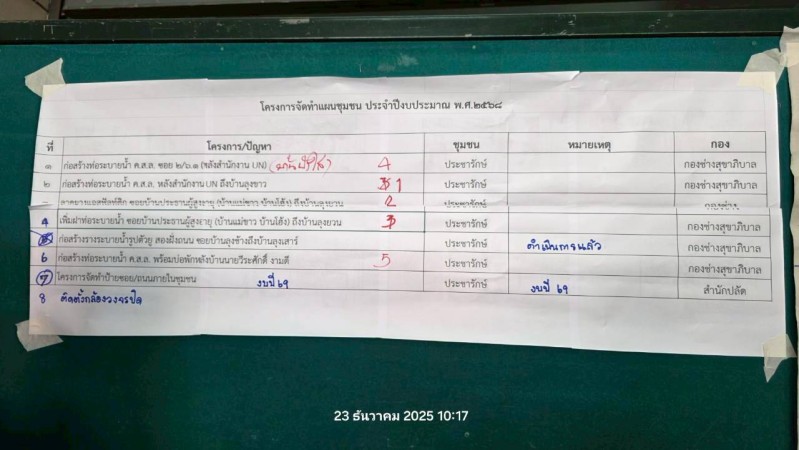 โครงการจัดทำแผนชุมชน ประจำปีงบประมาณ พ.ศ.๒๕๖๘
ที่ โครงการ/ปัญหา ชุมชน หมายเหตุ กอง
๑ ก่อสร้างท่อระบายน้ำ ค.ส.ล. ซอย ๒/๖.๑ (หลังสำนักงาน UN) 4 ประชารักษ์ กองช่างสุขาภิบาล
๒ ก่อสร้างท่อระบายน้ำ ค.ส.ล. หลังสำนักงาน UN ถึงบ้านลุงขาว 1 ประชารักษ์ กองช่างสุขาภิบาล
ลาดยางแอสฟัลท์ติก ซอยบ้านประธานผู้สูงอายุ (บ้านแม่ขาว บ้านโฮ้ง) ถึงบ้านลุงยวน 2 ประชารักษ์ กองช่าง
4 เพิ่มฝาท่อระบายน้ำ ซอยบ้านประธานผู้สูงอายุ (บ้านแม่ขาว บ้านโฮ้ง) ถึงบ้านลุงยวน 3 ประชารักษ์ กองช่างสุขาภิบาล
5 ก่อสร้างรางระบายน้ำรูปตัวยู สองฝั่งถนน ซอยบ้านลุงช้างถึงบ้านลุงเสาร์ ประชารักษ์ ดำเนินการแล้ว กองช่างสุขาภิบาล
6 ก่อสร้างท่อระบายน้ำ ค.ส.ล. พร้อมบ่อพักหลังบ้านนายวีระศักดิ์ งามดี 5 ประชารักษ์ กองช่างสุขาภิบาล
7 โครงการจัดทำป้ายซอย/ถนนภายในชุมชน งบปี 69 ประชารักษ์ งบปี 69 สำนักปลัด
8 ติดตั้งกล้องวงจรปิด
23 ธันวาคม 2025 10:17